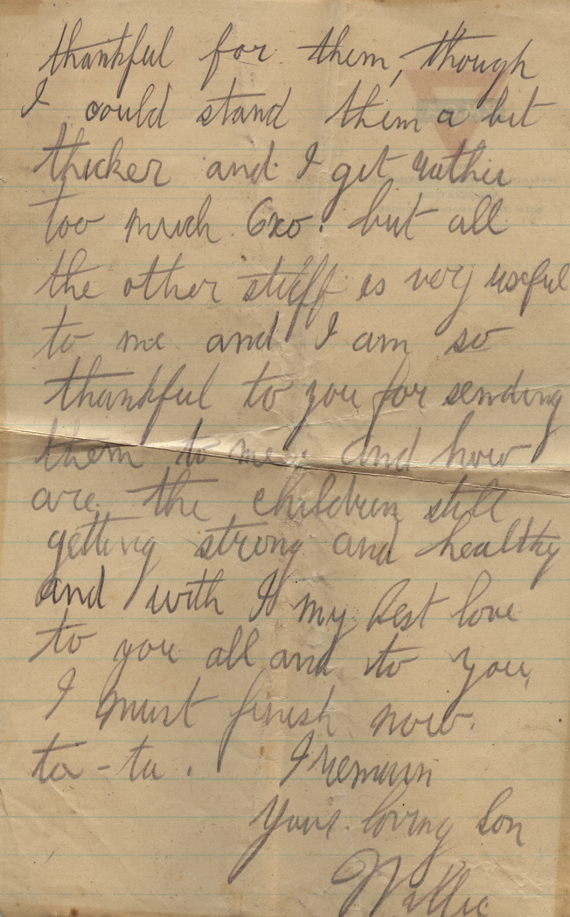 thankful for them, though
I could stand them a bit
thicker and I get rather
too much Oxo. but all
the other stuff is very useful
to me and I am so
thankful to you for sending
them to me. and how
are the children still
getting strong and healthy
and with my best love
to you all and to you,
I must finish now.
ta-ta. I remain
Your loving Son
Willie